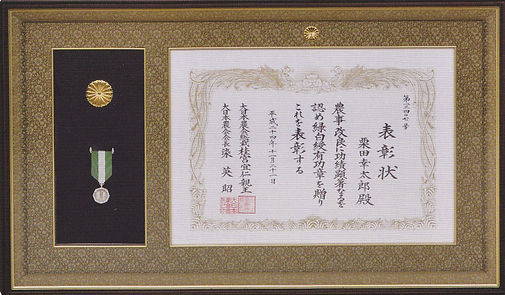 表彰状
栗田幸太郎殿
農事改良に功績顕著なるを
認め緑白綬有功章を贈り
これを表彰する
平成二十四年十一月二十一日
大日本農会総裁桂宮宜仁親王
大日本農会会長染英昭